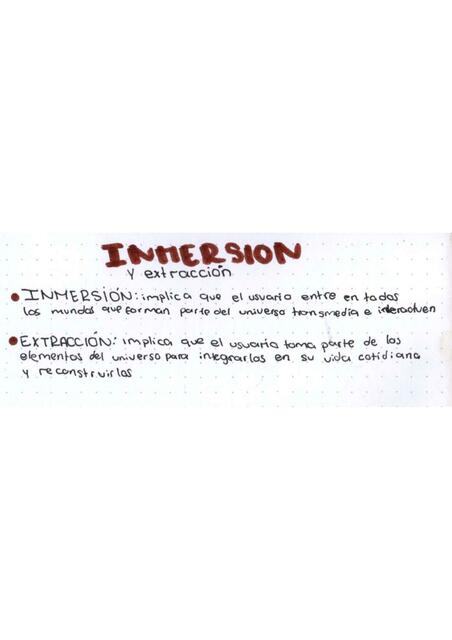 INMERSION
Y extracción
• INMERSIÓN: implica que el usuario entre en todos
los mundos que forman parte del universo transmedia e interactuen
• EXTRACCIÓN: implica que el usuario toma parte de los
elementos del universo para integrarlos en su vida cotidiana
y reconstruirlos